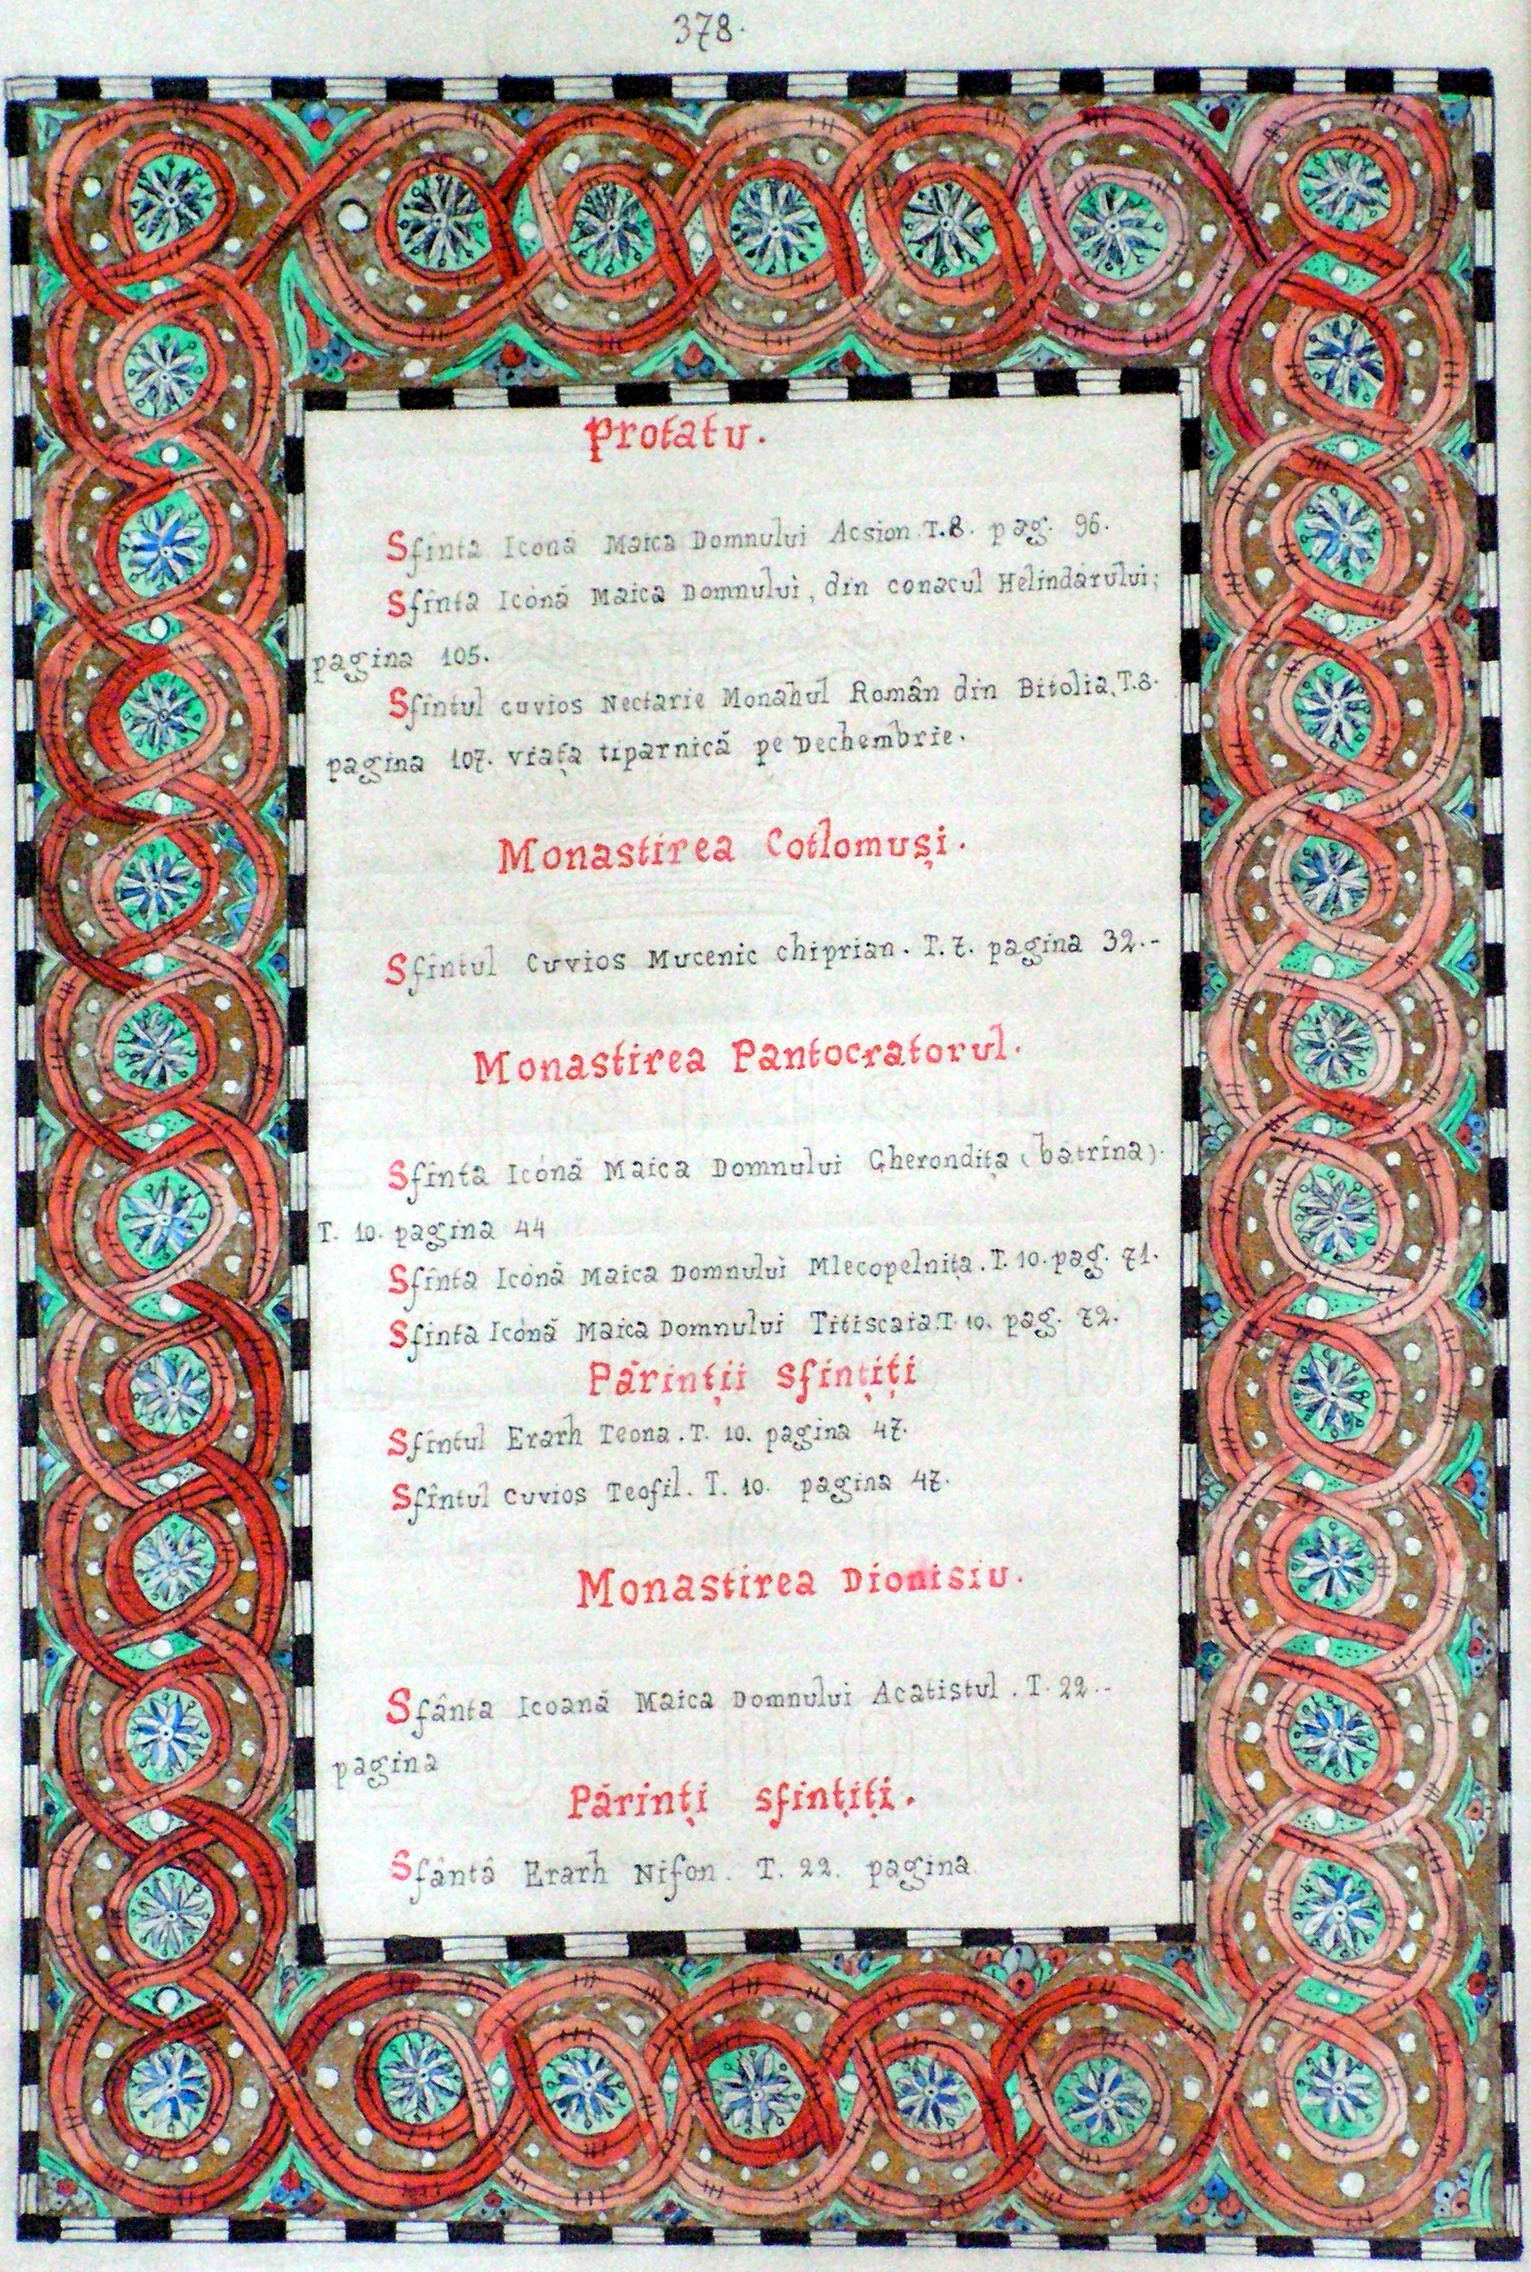 378.
Protatu.
Sfînta Iconă Maica Domnului Acsion.T.8. pag. 96.
Sfînta Icónă Maica Domnului, din conacul Helindarului;
pagina 105.
Sfîntul cuvios Nectarie Monahul Român din Bitolia.T.8.
pagina 107. viața tiparnică pe Dechembrie.
Monastirea Cotlomuși.
Sfîntul Cuvios Mucenic chiprian. T. 7. pagina 32.-
Monastirea Pantocratorul.
Sfînta Icónă Maica Domnului Gherondița (batrîna).
T. 10. pagina 44
Sfînta Icónă Maica Domnului Mlecopelnița. T. 10. pag. 71.
Sfinta Icónă Maica Domnului Titiscaia.T. 10. pag. 72.
Părinții sfințiți
Sfîntul Erarh Teona. T. 10. pagina 47.
Sfîntul cuvios Teofil. T. 10. pagina 47.
Monastirea Dionisiu.
Sfânta Icoană Maica Domnului Acatistul. T. 22.-
pagina
Părinți sfințiți.
Sfântă Erarh Nifon. T. 22. pagina